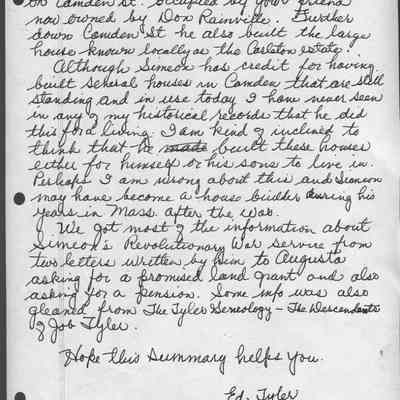 on Camden St. occupied by your friend
now owned by Don Rainville. Further
down Camden St he also built the large
house known locally as the Carleton estate.
Although Simeon has credit for having
built several houses in Camden that are still
standing and in use today I have never seen
in any of my historical records that he did
this for a living. I am kind of inclined to
think that he made built these houses
either for himself or his sons to live in.
Perhaps I am wrong about this and Simeon
may have become a house builder during his
years in Mass. after the war.
We got most of the information about
Simeon's Revolutionary War service from
two letters written by him to Augusta
asking for a promised land grant and also
asking for a pension. Some info was also
gleaned from The Tyler Geneology - The Descendants
of Job Tyler.
Hope this summary helps you.
Ed. Tyler